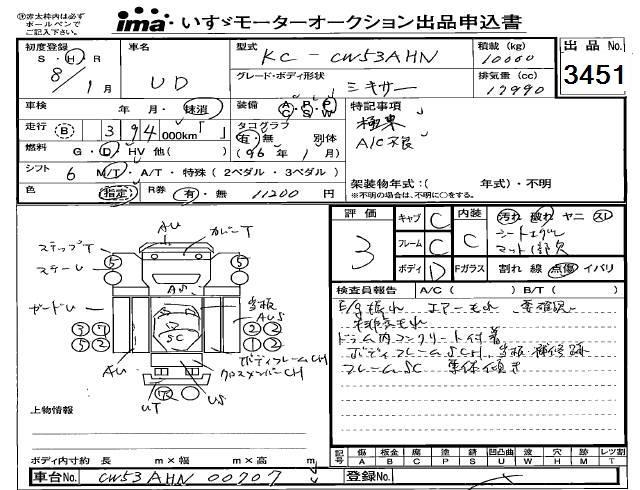 赤太枠内は必ず
ボールペンで
ご記入下さい。
ima いすゞモーターオークション出品申込書
初度登録 車名 型式 積載 (kg) 出品No.
S・H・R UD KC-CW53AHN 10000
8/1月 グレード・ボディ形状 排気量 (cc) 3451
ミキサー 17990
車検 年 月・抹消 装備 A C P S P W 特記事項
走行 B 3 94 000km「 」 タコグラフ 極東
有・無 別体 A/C不良
燃料 G・D・HV 他( ) (96年 1月)
シフト 6 M/T・A/T・特殊(2ペダル・3ペダル) 架装物年式:( 年式)・不明
色 指定 R券 有・無 11200円 ※不明の場合は、不明に○をする。
評価 3 キャブ C 内装 C 汚れ 破れ ヤニ スレ
フレーム C マット
ボディ D Fガラス 割れ 線 点傷 イバリ
AU
ステップT カバーT
ステーU
AS
ガードU 当板
AUS
SC
ボディフレームCH
AU クロスメンバーCH
UT US
検査員報告 A/C( ) B/T( )
E/g振れ エアーもれ 要確認
排気もれ
ドラム内コンクリート付着
ボディフレームSCH 当板・補修跡
フレームSC 車体傾き
上物情報
ボディ内寸約 長 m×幅 m×高 m
記号 傷 A 板金 B 腐 C 塗 P 錆 S 凹凸曲 U 波 W 穴 H 跡 M レツ割 T
車台No. CW53AHN 00707 登録No.